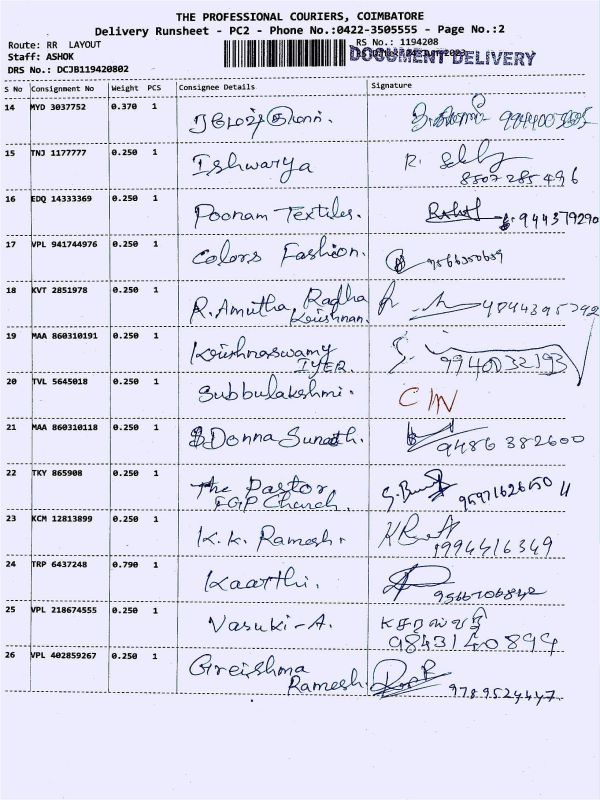 THE PROFESSIONAL COURIERS, COIMBATORE
Delivery Runsheet - PC2 - Phone No.:0422-3505555 - Page No.:2
Route: RR LAYOUT
RS No.: 1194208
Staff: ASHOK
DOCUMENT DELIVERY
DRS No.: DCJB119420802
S No Consignment No Weight PCS Consignee Details Signature
14 MYD 3037752 0.370 1
15 TNJ 1177777 0.250 1 Ishwarya R. 8507285496
16 EDQ 14333369 0.250 1 Poonam Textiles. 944379290
17 VPL 941744976 0.250 1 Colors Fashion. 9566350639
18 KVT 2851978 0.250 1 R. Amutha Radha
Krishnan.
19 MAA 860310191 0.250 1 Krishnaswamy
IYER. 9940032193
20 TVL 5645018 0.250 1 Subbulakshmi.
21 MAA 860310118 0.250 1 Donna 9486382600
22 TKY 865908 0.250 1 The Pastor
FGP Church.
23 KCM 12813899 0.250 1 K.K. Ramesh. 9994416349
24 TRP 6437248 0.790 1 Kaarthi. 9566706842
25 VPL 218674555 0.250 1 Vasuki-A.
9843140899
26 VPL 402859267 0.250 1 Greishma
Ramesh. 9789524447.